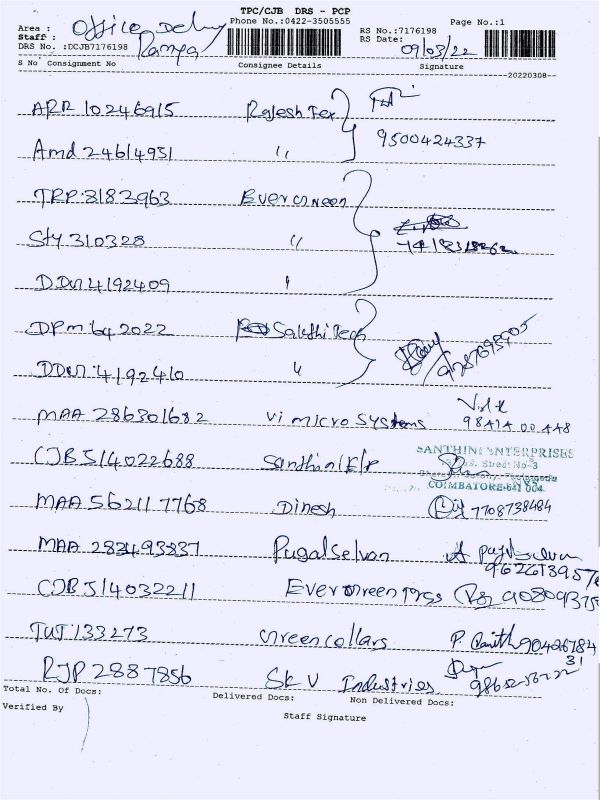 TPC/CJB DRS - PCP
Area : Office Delry Phone No.:0422-3505555 Page No.:1
Staff : Ramya RS No.:7176198
DRS No. :DCJB7176198 RS Date: 09/03/22
S No Consignment No Consignee Details Signature
20220308
ARR 10246915 Rajesh Tex
Amd 24614951 " 9500424337
TRP 3183963 Evergreen
Sty 310328 "
DDM 4192409 "
DPM 642022 Sakthi Tech
DDM 4192410 "
MAA 286301682 Vi micro Systems 98414 00448
SANTHINI ENTERPRISES
CJB 514022688 Santhini E/P
COIMBATORE-641 004.
MAA 562117768 Dinesh 7708738484
MAA 283493837 Pugalselvan
CJB 514032211 Evergreen
TUT 133273 Green collars
RJP 2887856 SKV Industries
Total No. Of Docs: Delivered Docs: Non Delivered Docs:
Verified By Staff Signature